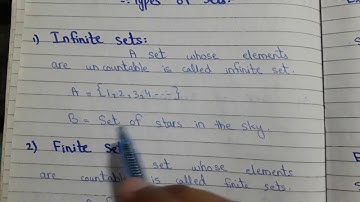 :-Types of sets:
1) Infinite sets:
A set whose elements
are uncountable is called infinite set.
A = {1,2,3,4---}
B = Set of stars in the sky.
2) Finite se
set whose elements
are countable is called finite sets.